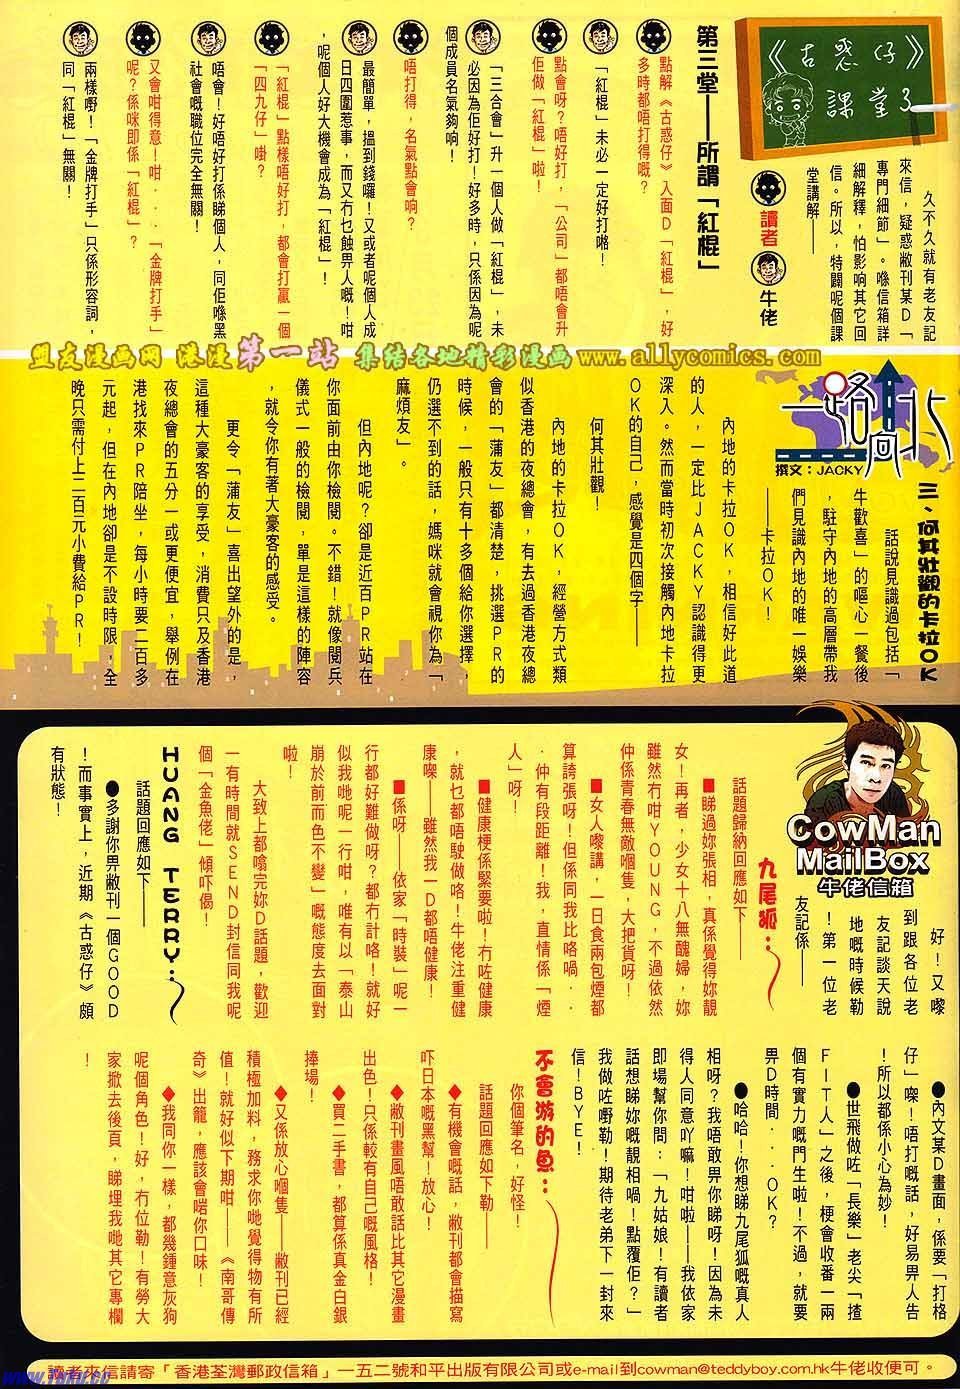 《古惑仔》
課堂3
久不久就有老友記
來信，疑惑敝刊某D「
專門細節」。喺信箱詳
細解釋，怕影響其它回
信。所以，特闢呢個課
堂講解——
讀者
牛佬
第三堂——所謂「紅棍」
點解《古惑仔》入面D「紅棍」，好
多時都唔打得嘅？
「紅棍」未必一定好打咯！
點會呀？唔好打，「公司」都唔會升
佢做「紅棍」啦！
「三合會」升一個人做「紅棍」，未
必因為佢好打！好多時，只係因為呢
個成員名氣夠响！
唔打得，名氣點會响？
最簡單，搵到錢囉！又或者呢個人成
日四圍惹事，而又冇乜蝕畀人嘅！咁
，呢個人好大機會成為「紅棍」！
「紅棍」點樣唔好打，都會打贏一個
「四九仔」啩？
唔會！好唔好打係睇個人，同佢喺黑
社會嘅職位完全無關！
又會咁得意！咁‧‧‧「金牌打手」
呢？係咪即係「紅棍」？
兩樣嘢！「金牌打手」只係形容詞，
同「紅棍」無關！
盟友漫画网 港漫第一站 集结各地精彩漫画 www.allycomics.com
一路向北
撰文：JACKY
三、何其壯觀的卡拉OK
話說見識過包括「
牛歡喜」的嘔心一餐後
，駐守內地的高層帶我
們見識內地的唯一娛樂
——卡拉OK！
內地的卡拉OK，相信好此道
的人，一定比JACKY認識得更
深入。然而當時初次接觸內地卡拉
OK的自己，感覺是四個字——
何其壯觀！
內地的卡拉OK，經營方式類
似香港的夜總會，有去過香港夜總
會的「蒲友」都清楚，挑選PR的
時候，一般只有十多個給你選擇，
仍選不到的話，媽咪就會視你為「
麻煩友」。
但內地呢？卻是近百PR站在
你面前由你檢閱。不錯！就像閱兵
儀式一般的檢閱，單是這樣的陣容
，就令你有著大豪客的感受。
更令「蒲友」喜出望外的是，
這種大豪客的享受，消費只及香港
夜總會的五分一或更便宜，舉例在
港找來PR陪坐，每小時要二百多
元起，但在內地卻是不設時限，全
晚只需付上二百元小費給PR！
CowMan
MailBox
牛佬信箱
好！又嚟
到跟各位老
友記談天說
地嘅時候勒
！第一位老
友記係——
九尾狐：
話題歸納回應如下——
■睇過妳張相，真係覺得妳靚
女！再者，少女十八無醜婦，妳
雖然冇咁YOUNG，不過依然
仲係青春無敵嗰隻，大把貨呀！
■女人嚟講，一日食兩包煙都
算誇張呀！但係同我比咯喎‧‧
‧仲有段距離！我，直情係「煙
人」呀！
■健康梗係緊要啦！冇咗健康
，就乜都唔駛做咯！牛佬注重健
康㗎——雖然我一D都唔健康！
■係呀——依家「時裝」呢一
行都好難做呀？都冇計咯！就好
似我哋呢一行咁，唯有以「泰山
崩於前而色不變」嘅態度去面對
啦！
大致上都噏完妳D話題，歡迎
一有時間就SEND封信同我呢
個「金魚佬」傾吓偈！
HUANG TERRY：
話題回應如下——
●多謝你畀敝刊一個GOOD
！而事實上，近期《古惑仔》頗
有狀態！
●內文某D畫面，係要「打格
仔」㗎！唔打嘅話，好易畀人告
！所以都係小心為妙！
●世飛做咗「長樂」老尖「揸
FIT人」之後，梗會收番一兩
個有實力嘅門生啦！不過，就要
畀D時間‧‧‧OK？
●哈哈！你想睇九尾狐嘅真人
相呀？我唔敢畀你睇呀！因為未
得人同意吖嘛！咁啦——我依家
即場幫你問：「九姑娘！有讀者
話想睇妳嘅靚相喎！點覆佢？」
我做咗嘢勒！期待老弟下一封來
信！BYE！
不會游的魚：
你個筆名，好怪！
話題回應如下勒——
◆有機會嘅話，敝刊都會描寫
吓日本嘅黑幫！放心！
◆敝刊畫風唔敢話比其它漫畫
出色！只係較有自己嘅風格！
◆買二手書，都算係真金白銀
捧場！
◆又係放心嗰隻——敝刊已經
積極加料，務求你哋覺得物有所
值！就好似下期咁——《南哥傳
奇》出籠，應該會啱你口味！
◆我同你一樣，都幾鍾意灰狗
呢個角色！好，冇位勒！有勞大
家掀去後頁，睇埋我哋其它專欄
！
讀者來信請寄「香港荃灣郵政信箱」一五二號和平出版有限公司或e-mail到cowman@teddyboy.com.hk牛佬收便可。
www.YOKU.CC